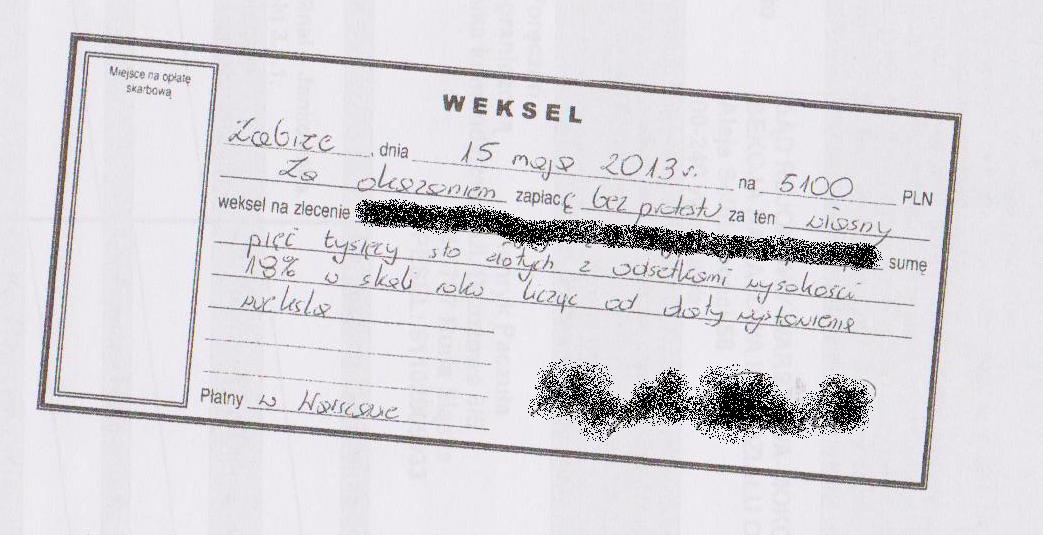 Miejsce na opłatę
skarbową
WEKSEL
Ząbize, dnia 15 maja 2013 r. na 5100 PLN
Za okazaniem zapłacę bez protestu za ten własny
weksel na zlecenie sumę
pięć tysięcy sto złotych z odsetkami wysokości
18% w skali roku licząc od daty wystawienia
weksla
Płatny w Warszawie